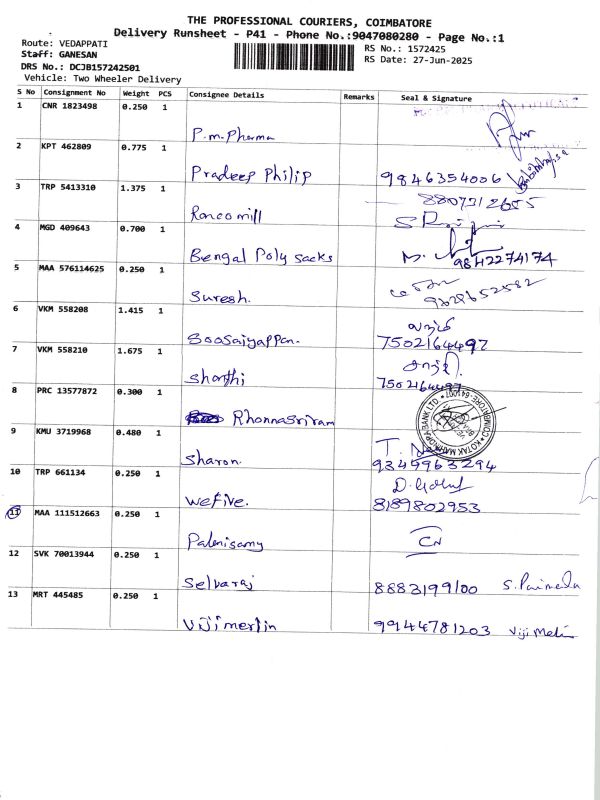 THE PROFESSIONAL COURIERS, COIMBATORE
Delivery Runsheet - P41 - Phone No.:9047080280 - Page No.:1
Route: VEDAPPATI
Staff: GANESAN
DRS No.: DCJB157242501
Vehicle: Two Wheeler Delivery
RS No.: 1572425
RS Date: 27-Jun-2025
S No Consignment No Weight PCS Consignee Details Remarks Seal & Signature
1 CNR 1823498 0.250 1
P.m.Pharma
2 KPT 462809 0.775 1
Pradeep Philip 9846354006
3 TRP 5413310 1.375 1
8807212655
Rancomill
4 MGD 409643 0.700 1
Bengal Poly sacks 9842274174
5 MAA 576114625 0.250 1
Suresh. 9629652582
6 VKM 558208 1.415 1
Boosaiyappan. 7502164497
7 VKM 558210 1.675 1
சாந்தி
Shanthi 7502164497
8 PRC 13577872 0.300 1
Rhonnasriram
KOTAK MAHINDRA BANK LTD. COIMBATORE-641007
9 KMU 3719968 0.480 1
Sharon. 9349963294
10 TRP 661134 0.250 1
Wefive. 8189802953
11 MAA 111512663 0.250 1
Palenisamy
12 SVK 70013944 0.250 1
Selvaraj 8883199100
13 MRT 445485 0.250 1
Vijimerlin 9944781203 Viji Merlin